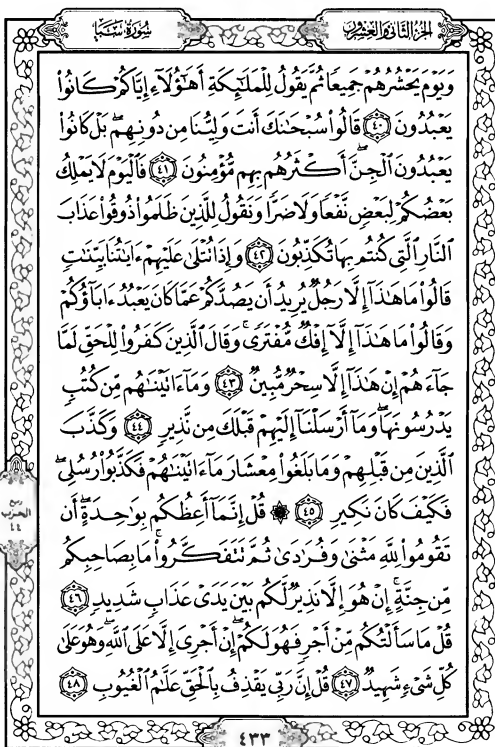 الجزء الثاني والعشرون
سورة سبأ
وَيَوْمَ يَحْشُرُهُمْ جَمِيعًا ثُمَّ يَقُولُ لِلْمَلَٰٓئِكَةِ أَهَٰٓؤُلَآءِ إِيَّاكُمْ كَانُوا۟
يَعْبُدُونَ ٤٠ قَالُوا۟ سُبْحَٰنَكَ أَنتَ وَلِيُّنَا مِن دُونِهِم ۖ بَلْ كَانُوا۟
يَعْبُدُونَ ٱلْجِنَّ ۖ أَكْثَرُهُم بِهِم مُّؤْمِنُونَ ٤١ فَٱلْيَوْمَ لَا يَمْلِكُ
بَعْضُكُمْ لِبَعْضٍ نَّفْعًا وَلَا ضَرًّا وَنَقُولُ لِلَّذِينَ ظَلَمُوا۟ ذُوقُوا۟ عَذَابَ
ٱلنَّارِ ٱلَّتِى كُنتُم بِهَا تُكَذِّبُونَ ٤٢ وَإِذَا تُتْلَىٰ عَلَيْهِمْ ءَايَٰتُنَا بَيِّنَٰتٍ
قَالُوا۟ مَا هَٰذَآ إِلَّا رَجُلٌ يُرِيدُ أَن يَصُدَّكُمْ عَمَّا كَانَ يَعْبُدُ ءَابَآؤُكُمْ
وَقَالُوا۟ مَا هَٰذَآ إِلَّآ إِفْكٌ مُّفْتَرًى ۚ وَقَالَ ٱلَّذِينَ كَفَرُوا۟ لِلْحَقِّ لَمَّا
جَآءَهُمْ إِنْ هَٰذَآ إِلَّا سِحْرٌ مُّبِينٌ ٤٣ وَمَآ ءَاتَيْنَٰهُم مِّن كُتُبٍ
يَدْرُسُونَهَا ۖ وَمَآ أَرْسَلْنَآ إِلَيْهِمْ قَبْلَكَ مِن نَّذِيرٍ ٤٤ وَكَذَّبَ
ٱلَّذِينَ مِن قَبْلِهِمْ وَمَا بَلَغُوا۟ مِعْشَارَ مَآ ءَاتَيْنَٰهُمْ فَكَذَّبُوا۟ رُسُلِى ۖ
فَكَيْفَ كَانَ نَكِيرِ ٤٥ ۞ قُلْ إِنَّمَآ أَعِظُكُم بِوَٰحِدَةٍ ۖ أَن
تَقُومُوا۟ لِلَّهِ مَثْنَىٰ وَفُرَٰدَىٰ ثُمَّ تَتَفَكَّرُوا۟ ۚ مَا بِصَاحِبِكُم
مِّن جِنَّةٍ ۚ إِنْ هُوَ إِلَّا نَذِيرٌ لَّكُم بَيْنَ يَدَىْ عَذَابٍ شَدِيدٍ ٤٦
قُلْ مَا سَأَلْتُكُم مِّنْ أَجْرٍ فَهُوَ لَكُمْ ۖ إِنْ أَجْرِىَ إِلَّا عَلَى ٱللَّهِ ۖ وَهُوَ عَلَىٰ
كُلِّ شَىْءٍ شَهِيدٌ ٤٧ قُلْ إِنَّ رَبِّى يَقْذِفُ بِٱلْحَقِّ عَلَّٰمُ ٱلْغُيُوبِ ٤٨
ربع
الحزب
٤٤
٤٣٣